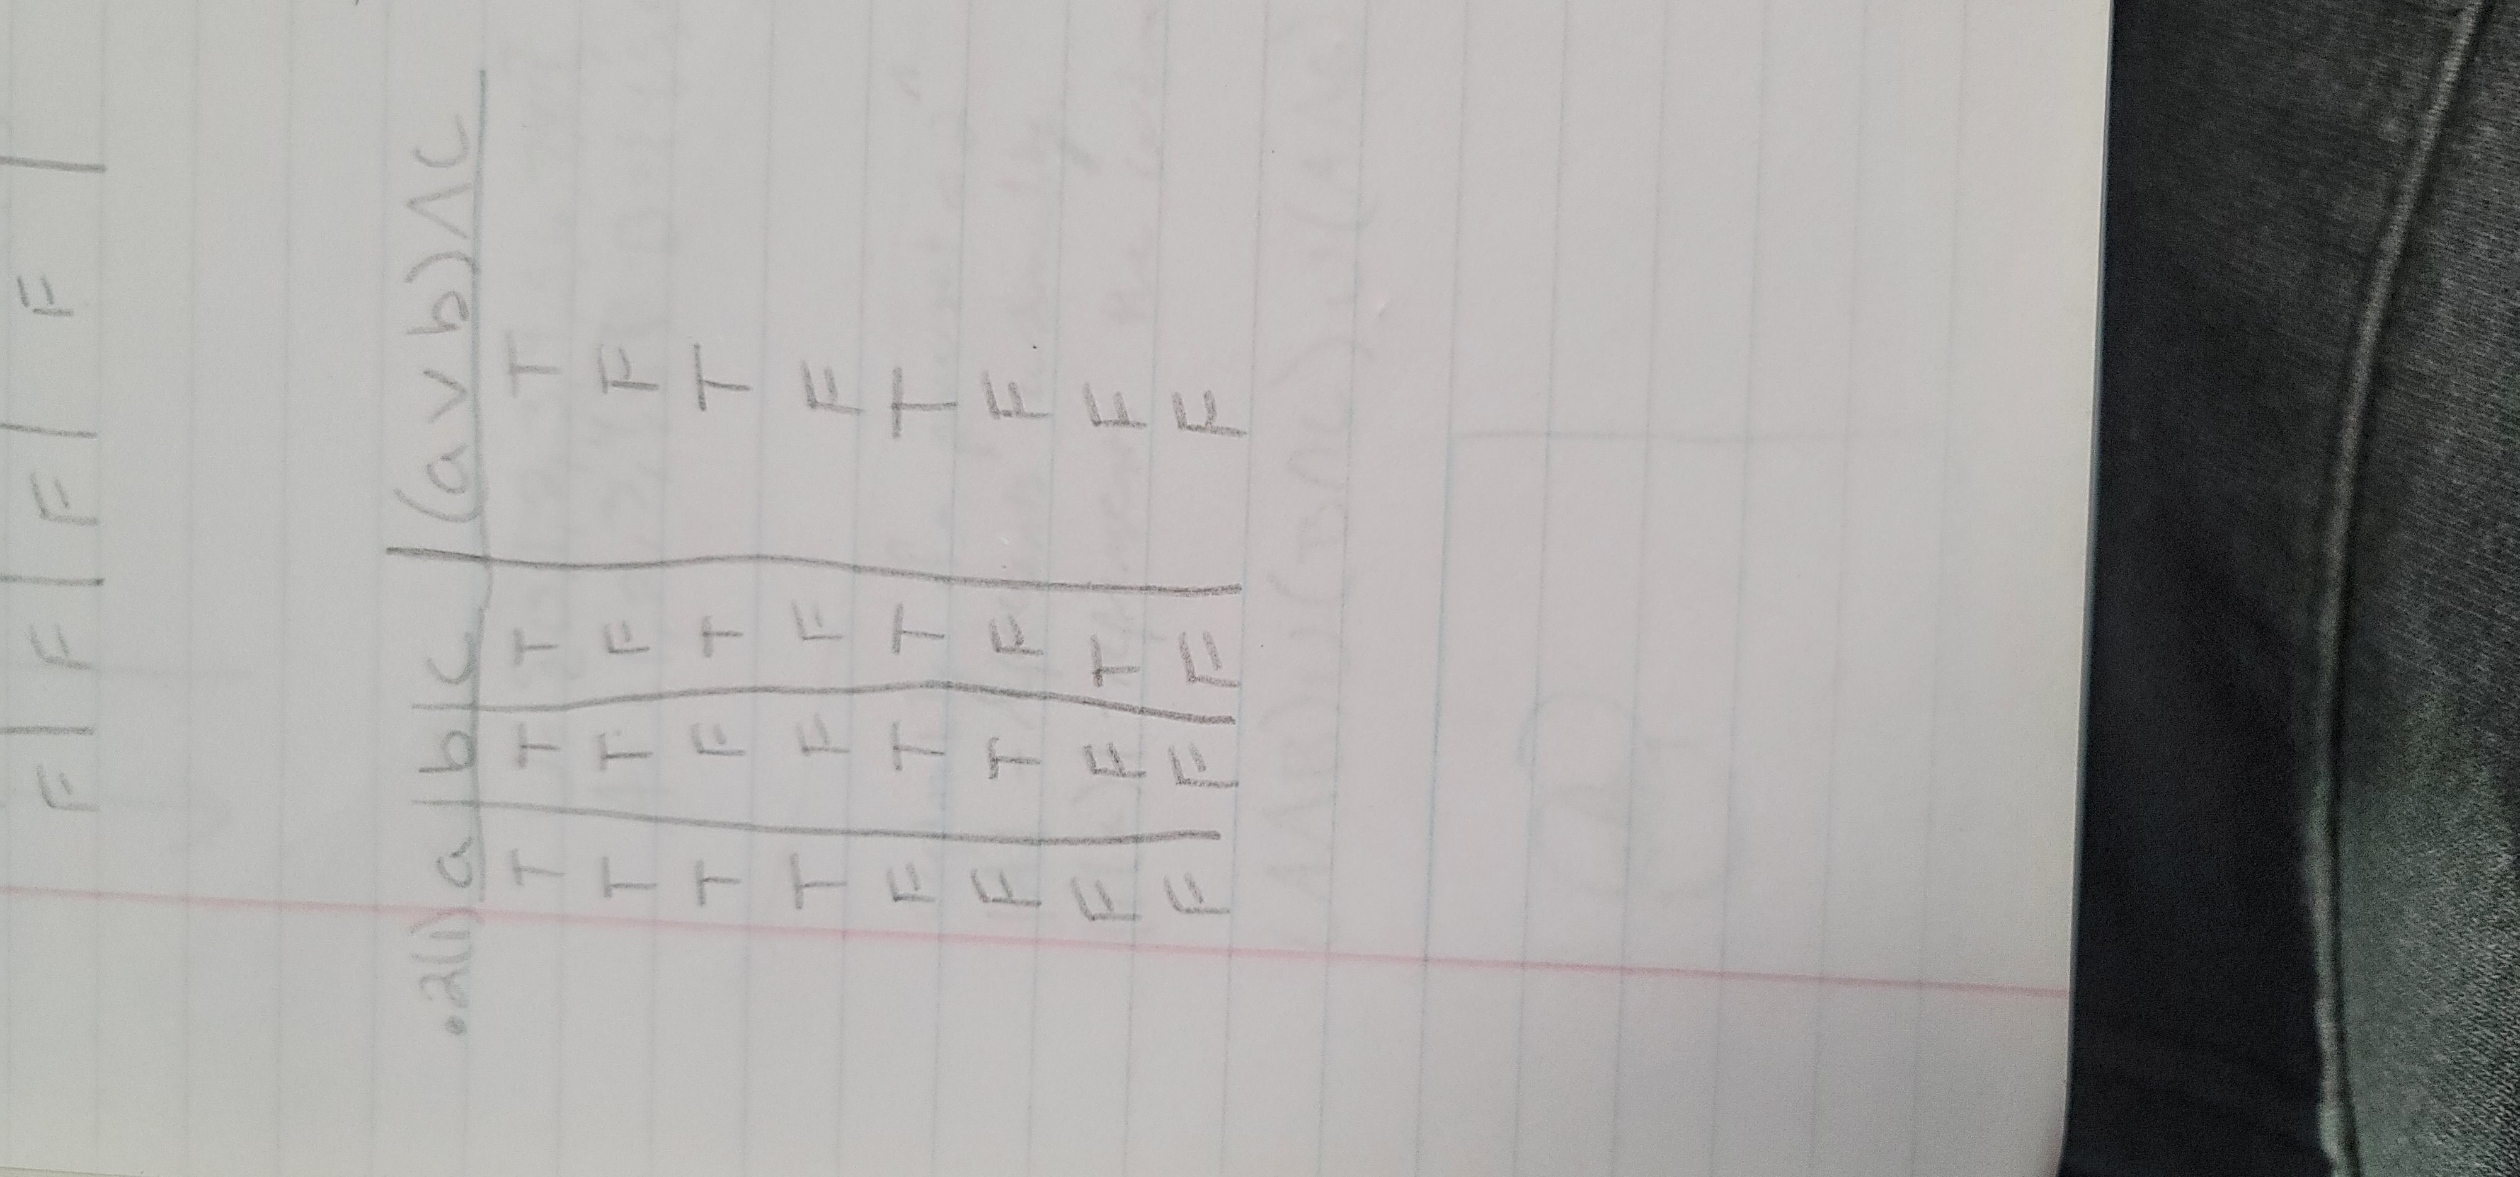 F | F | F | F |
.2(1) a | b | c | (a ∨ b) ∧ C
T | T | T | T
T | T | F | F
T | F | T | T
T | F | F | F
F | T | T | T
F | T | F | F
F | F | T | F
F | F | F | F